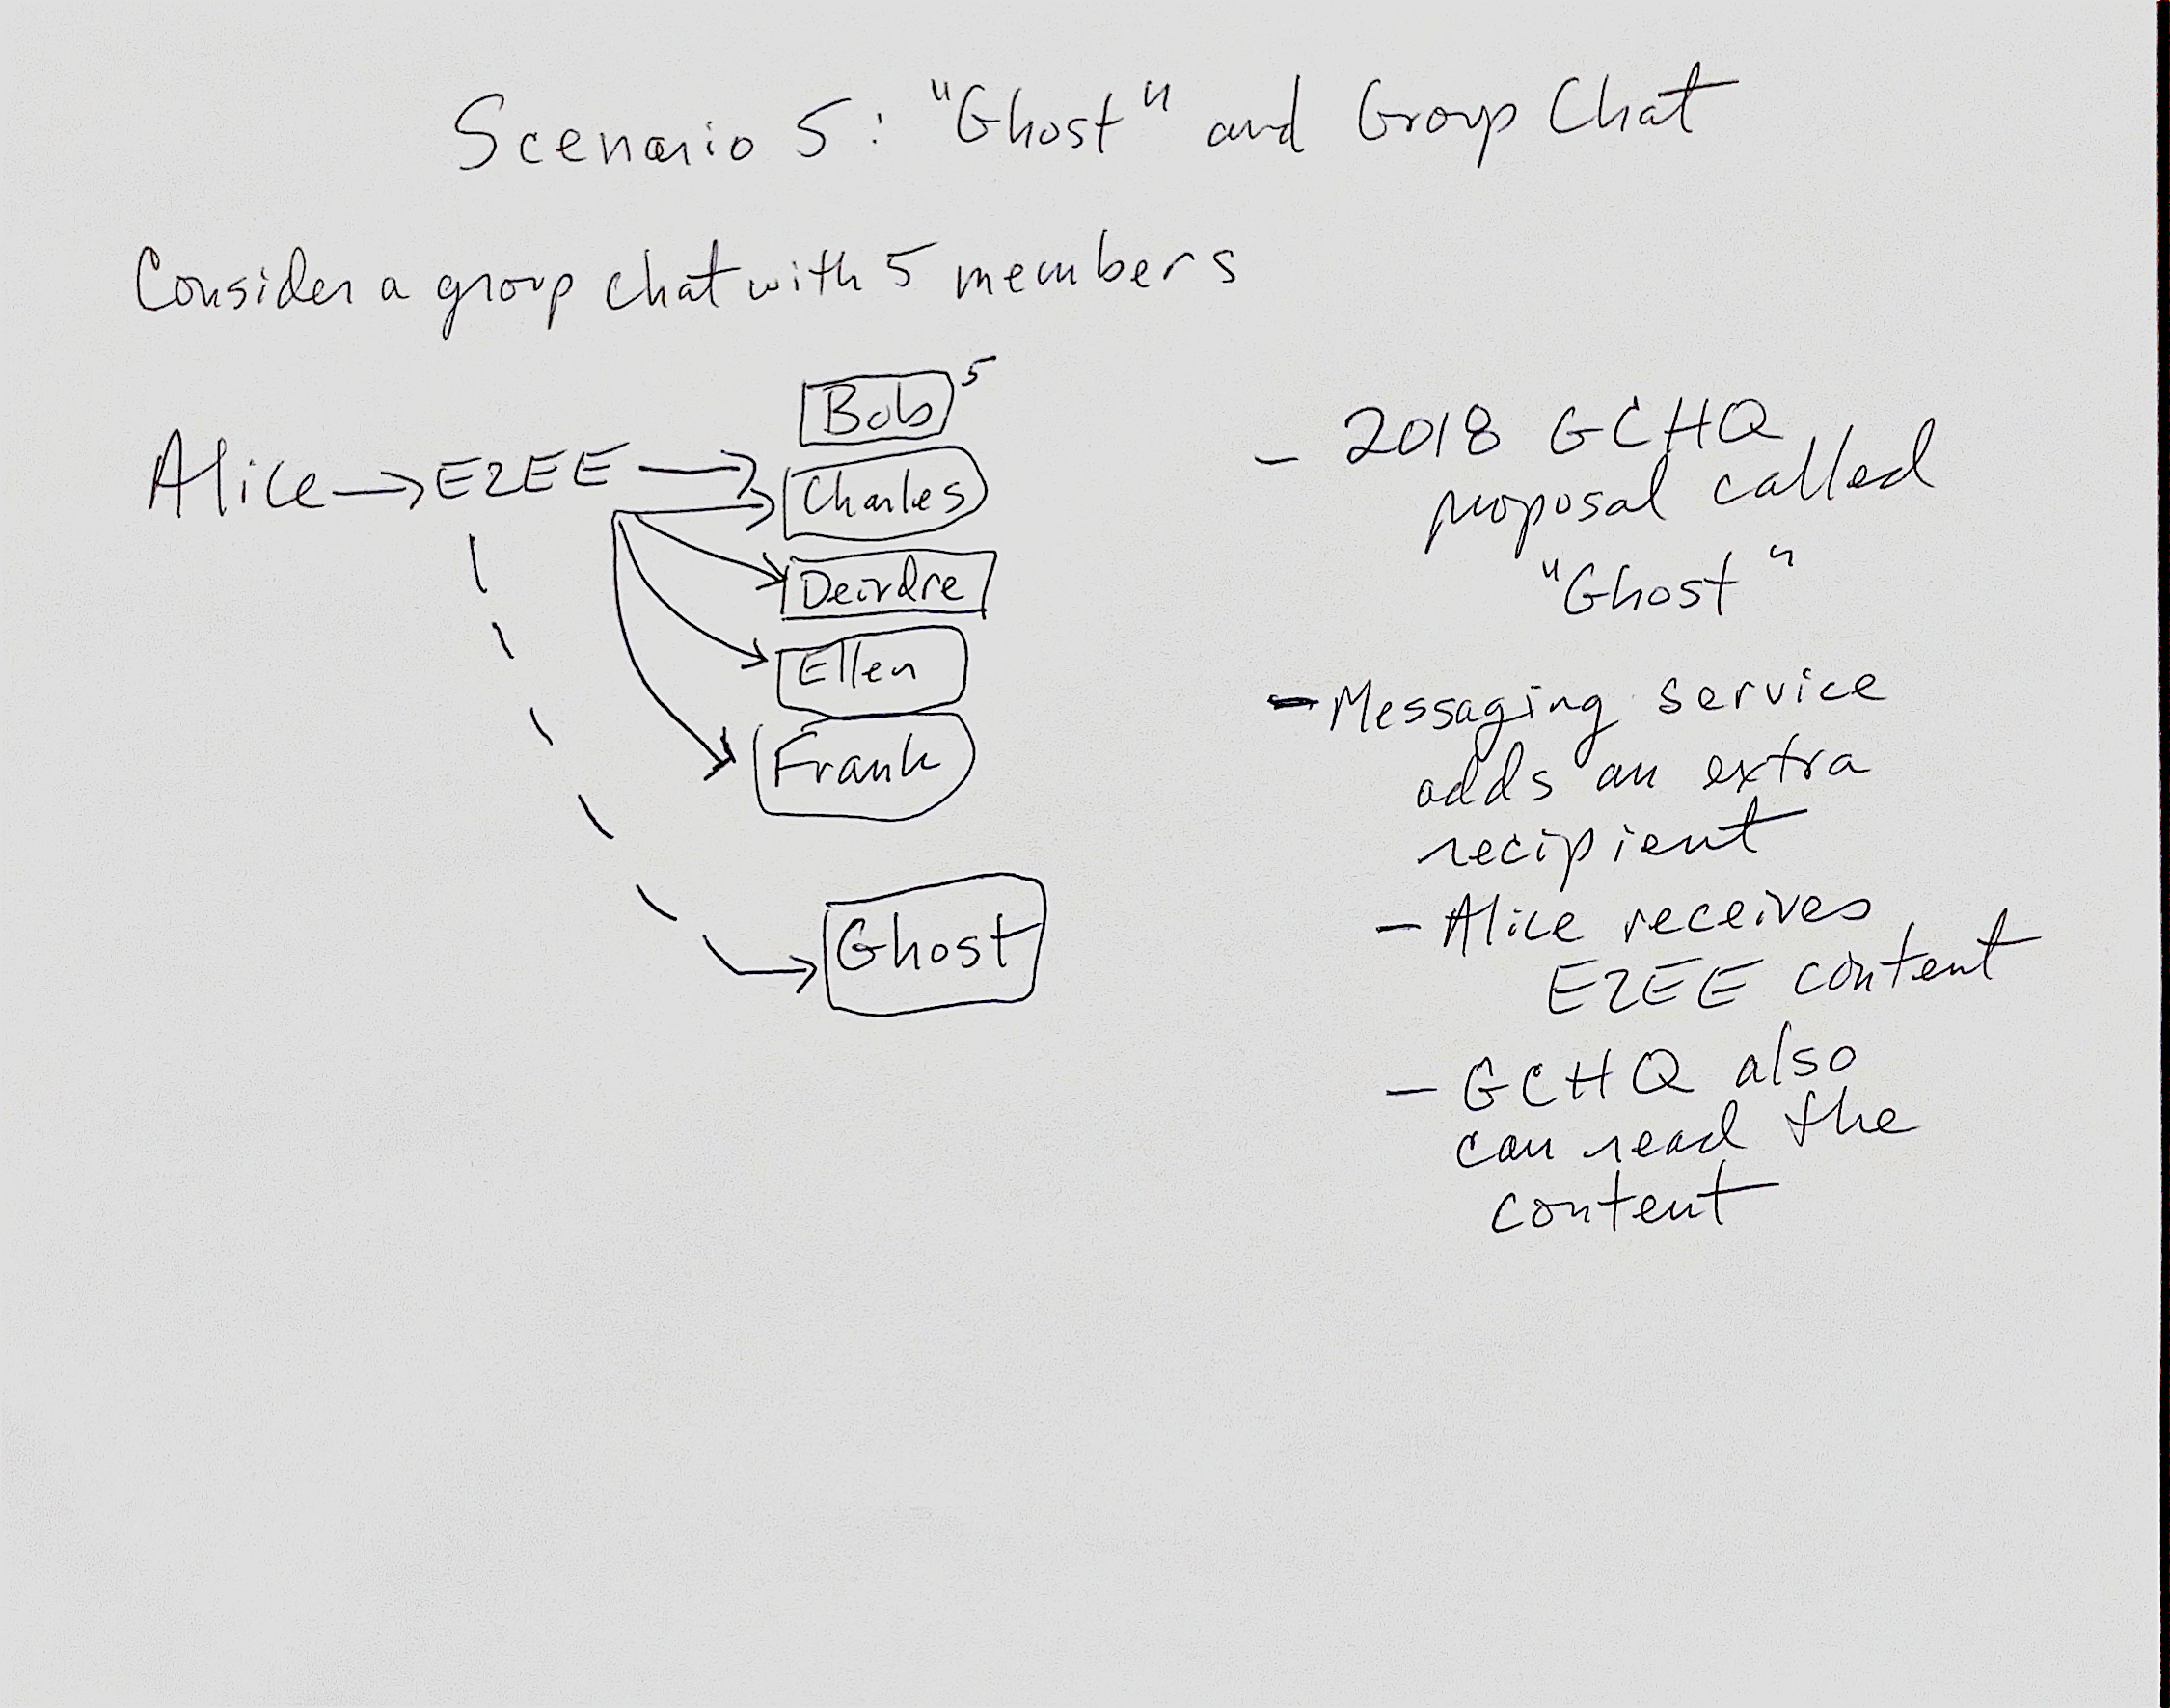 Scenario 5: "Ghost" and Group Chat
Consider a group chat with 5 members
Alice → E2EE →
Bob 5
Charles
Deirdre
Ellen
Frank
Ghost
- 2018 GCHQ
proposal called
"Ghost"
- Messaging service
adds an extra
recipient
- Alice receives
E2EE content
- GCHQ also
can read the
content